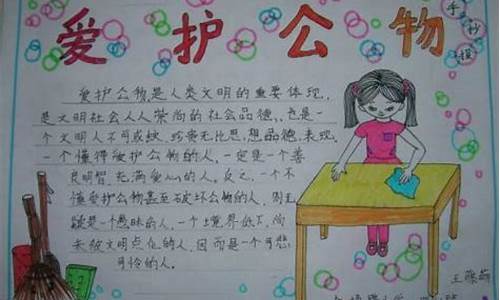 爱护公物
手抄报
爱护公物,是人类文明的重要体现,
是文明社会人人崇尚的社会品德,也是一
个文明人不可或缺、珍贵无比思想品德,表现。
一个懂得爱护公物的人,一定是一个善
良明智、充满爱心的人。反之,一个不
懂爱护公物甚至破坏公物的人,则无
疑是一个愚昧的人,一个境界低下,尚
未被文明点化的人,因而是一个可悲
可怜的人。
王